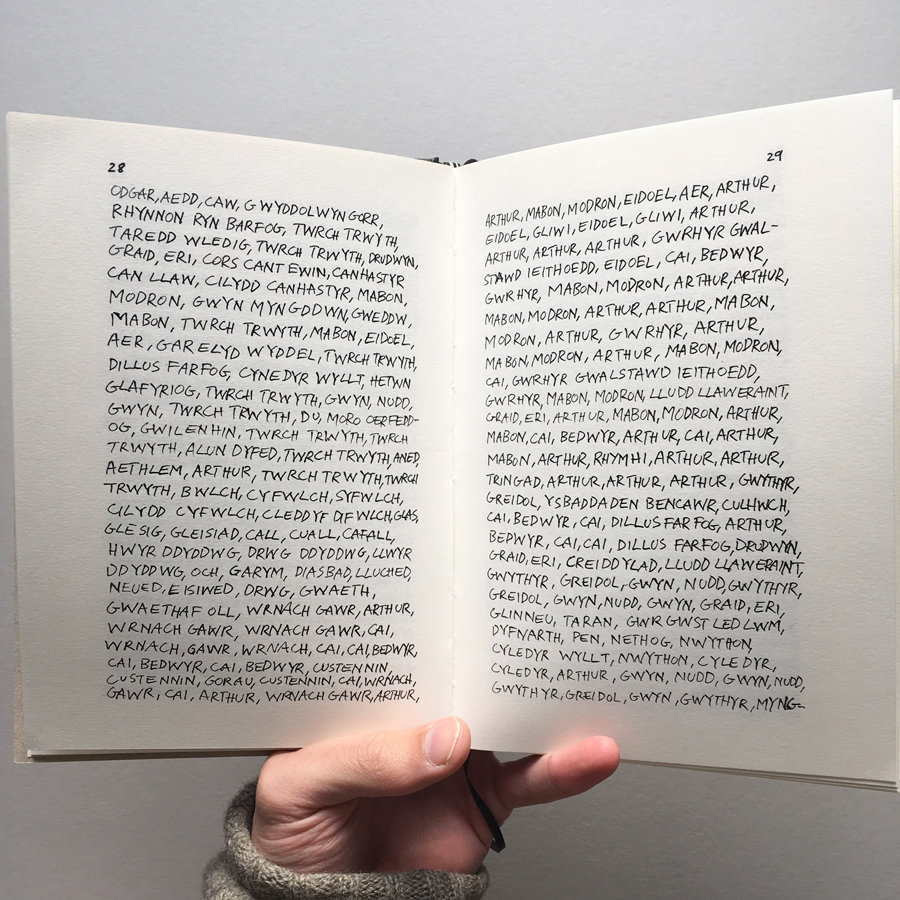 28
ODGAR, AEDD, CAW, GWYDDOLWYN GORR,
RHYNNON RYN BARFOG, TWRCH TRWYTH,
TAREDD WLEDIG, TWRCH TRWYTH, DRUDWYN,
GRAID, ERI, CORS CANT EWIN, CANHASTYR
CAN LLAW, CILYDD CANHASTYR, MABON,
MODRON, GWYN MYNGDDWN, GWEDDW,
MABON, TWRCH TRWYTH, MABON, EIDOEL,
AER, GARELYD WYDDEL, TWRCH TRWYTH,
DILLUS FARFOG, CYNEDYR WYLLT, HETWN
GLAFYRIOG, TWRCH TRWYTH, GWYN, NUDD,
GWYN, TWRCH TRWYTH, DU, MORO OERFEDD-
OG, GWILENHIN, TWRCH TRWYTH, TWRCH
TRWYTH, ALUN DYFED, TWRCH TRWYTH, ANED,
AETHLEM, ARTHUR, TWRCH TRWYTH, TWRCH
TRWYTH, BWLCH, CYFWLCH, SYFWLCH,
CILYDD CYFWLCH, CLEDDYF DIFWLCH, GLAS,
GLESIG, GLEISIAD, CALL, CUALL, CAFALL,
HWYR DDYDDWG, DRWG DDYDDWG, LLWYR
DDYDDWG, OCH, GARYM, DIASBAD, LLUCHED,
NEUED, EISIWED, DRWG, GWAETH,
GWAETHAF OLL, WRNACH GAWR, ARTHUR,
WRNACH GAWR, WRNACH GAWR, CAI,
WRNACH, GAWR, WRNACH, CAI, CAI, BEDWYR,
CAI, BEDWYR, CAI, BEDWYR, CUSTENNIN,
CUSTENNIN, GORAU, CUSTENNIN, CAI, WRNACH,
GAWR, CAI, ARTHUR, WRNACH GAWR, ARTHUR,
29
ARTHUR, MABON, MODRON, EIDOEL, AER, ARTHUR,
EIDOEL, GLIWI, EIDOEL, GLIWI, ARTHUR,
ARTHUR, ARTHUR, ARTHUR, GWRHYR GWAL-
STAWD IEITHOEDD, EIDOEL, CAI, BEDWYR,
GWRHYR, MABON, MODRON, ARTHUR, ARTHUR,
MABON, MODRON, ARTHUR, ARTHUR, MABON,
MODRON, ARTHUR, GWRHYR, ARTHUR,
MABON, MODRON, ARTHUR, MABON, MODRON,
CAI, GWRHYR GWALSTAWD IEITHOEDD,
GWRHYR, MABON, MODRON, LLUDD LLAWERAINT,
GRAID, ERI, ARTHUR, MABON, MODRON, ARTHUR,
MABON, CAI, BEDWYR, ARTHUR, CAI, ARTHUR,
MABON, ARTHUR, RHYMHI, ARTHUR, ARTHUR,
TRINGAD, ARTHUR, ARTHUR, ARTHUR, GWYTHYR,
GREIDOL, YSBADDADEN BENCAWR, CULHWCH,
CAI, BEDWYR, CAI, DILLUS FARFOG, ARTHUR,
BEDWYR, CAI, CAI, DILLUS FARFOG, DRUDWYN,
GRAID, ERI, CREIDDYLAD, LLUDD LLAWERAINT,
GWYTHYR, GREIDOL, GWYN, NUDD, GWYTHYR,
GREIDOL, GWYN, NUDD, GWYN, GRAID, ERI,
GLINNEU, TARAN, GWRGWST LEDLWM,
DYFNARTH, PEN, NETHOG, NWYTHON,
CYLEDYR WYLLT, NWYTHON, CYLEDYR,
CYLEDYR, ARTHUR, GWYN, NUDD, GWYN, NUDD,
GWYTHYR, GREIDOL, GWYN, GWYTHYR, MYNG-